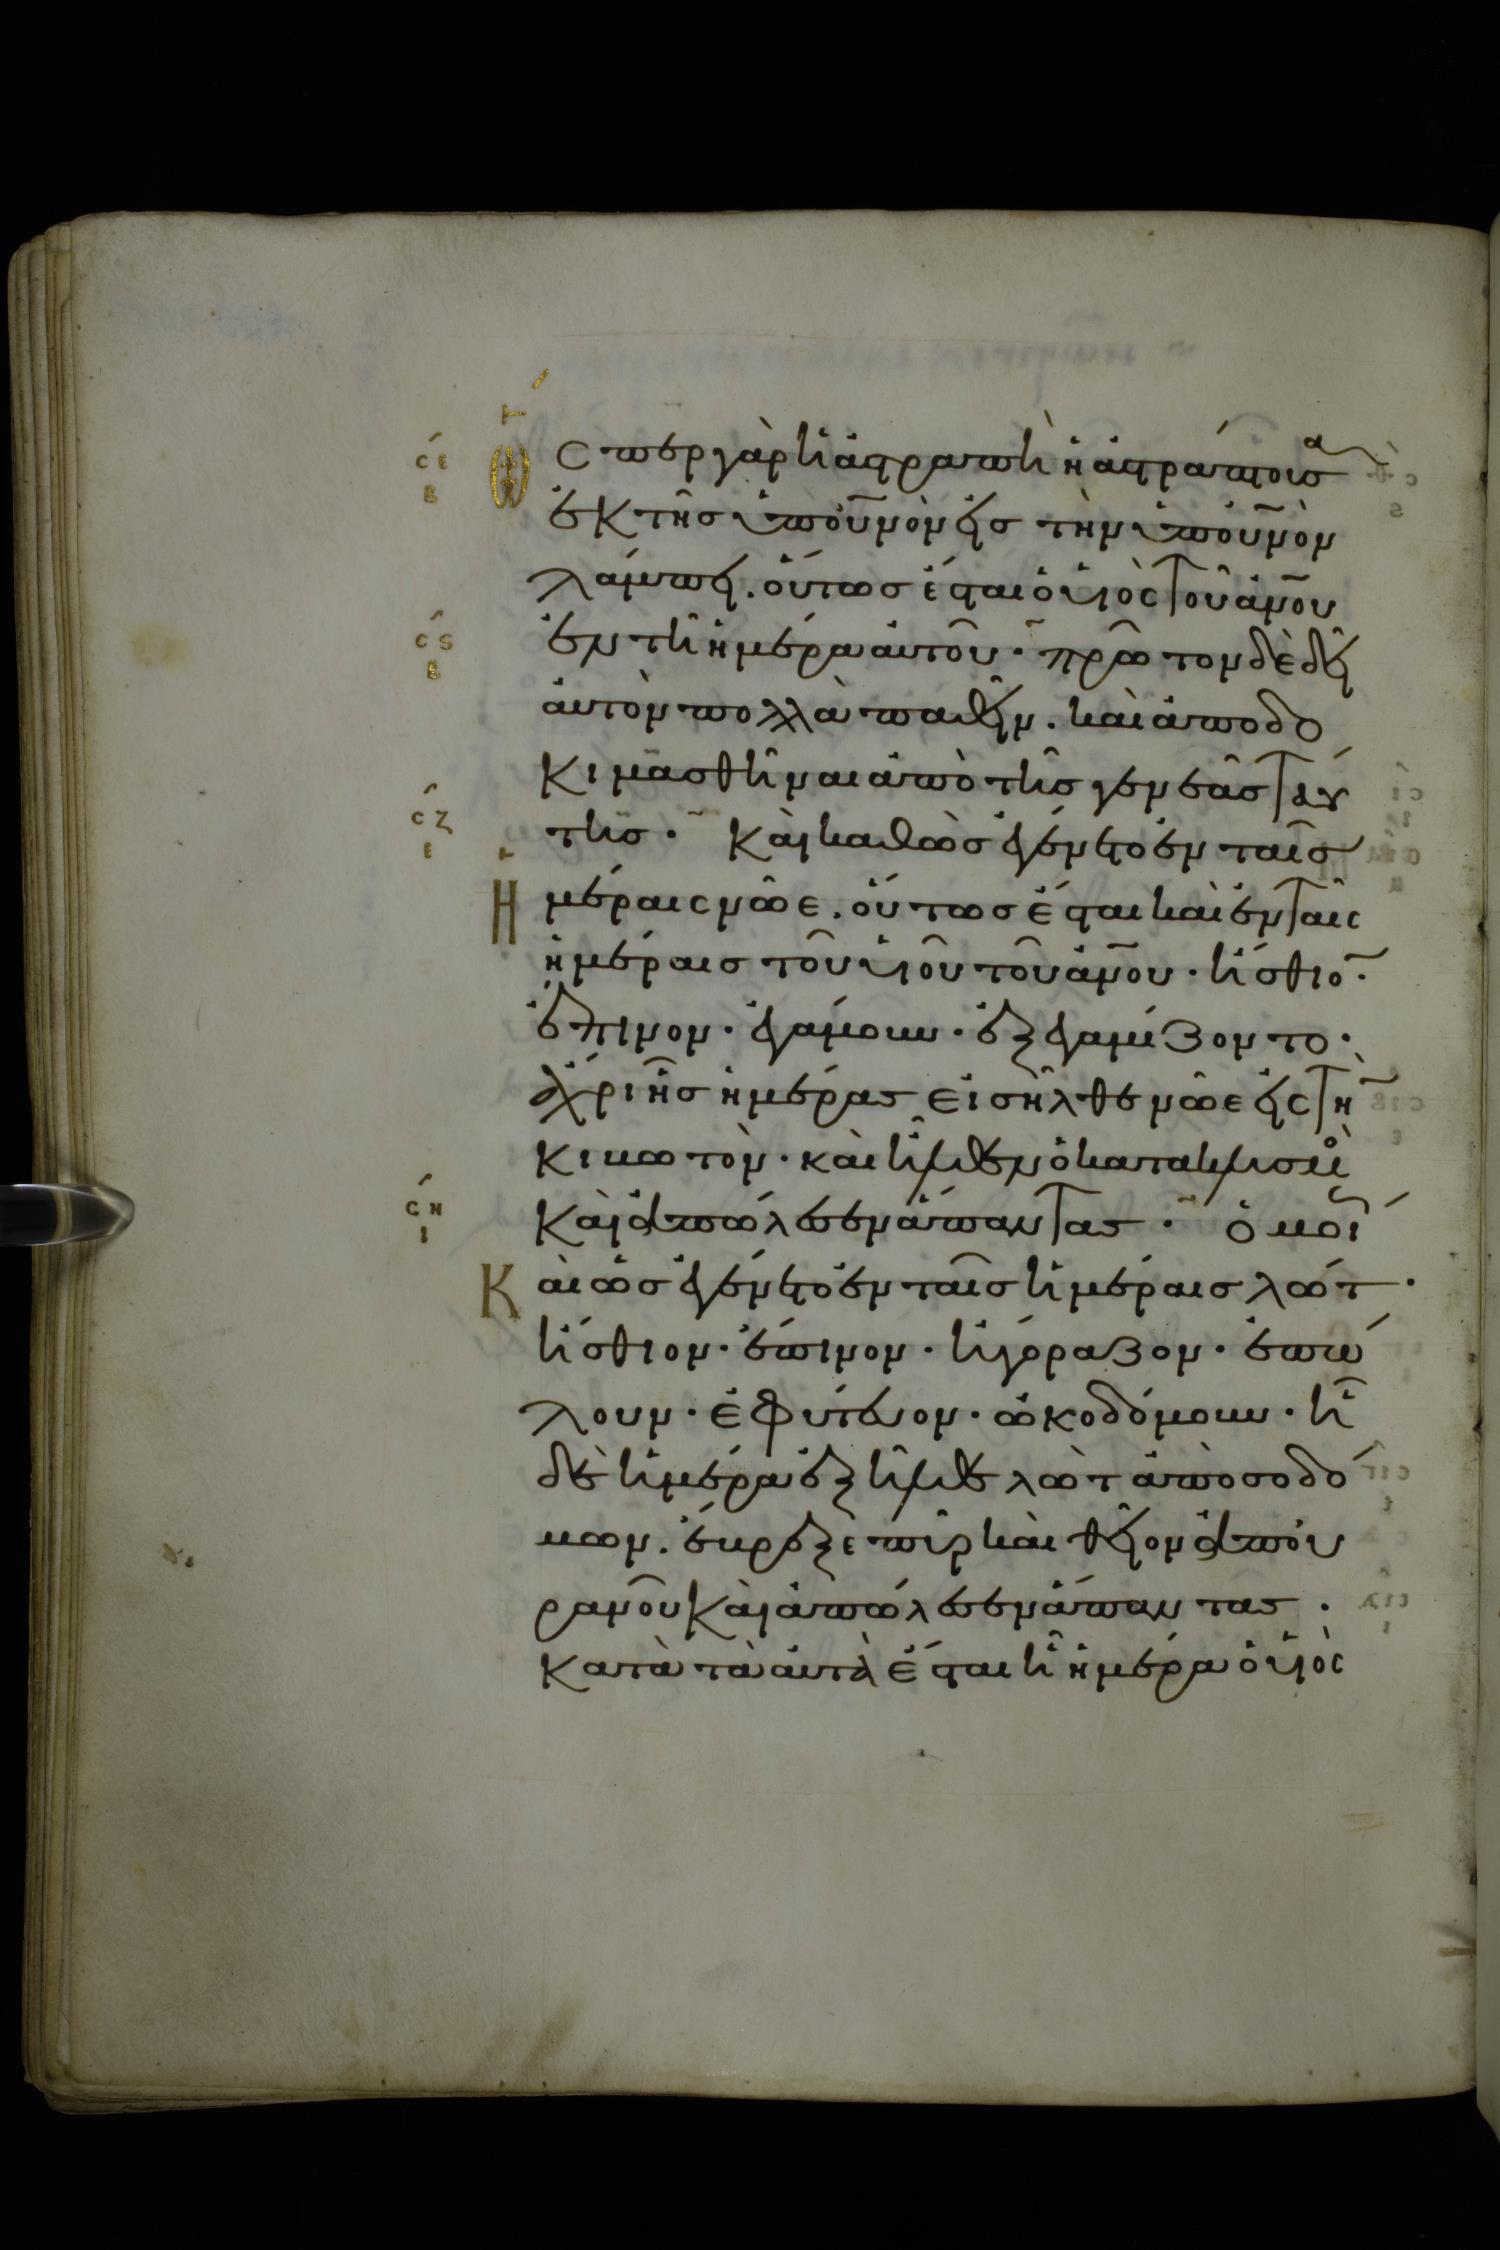 Ὥσπερ γὰρ ἡ ἀστραπὴ ἡ ἀστράπτουσα
ἐκ τῆς ὑπ' οὐνὸν εἰς τὴν ὑπ' οὐνὸν
λάμπει. οὕτως ἔσται ὁ υἱὸς τοῦ ἀνου
ἐν τῆ ἡμέρα αὐτοῦ· πρῶτον δὲ δεῖ
αὐτὸν πολλὰ παθεῖν. καὶ ἀποδο
κιμασθῆναι ἀπὸ τῆς γενεᾶς ταύ
της· Καὶ καθὼς ἐγένετο ἐν ταῖς
Ἡμέραις νῶε. οὕτως ἔσται καὶ ἐν ταῖς
ἡμέραις τοῦ υἱοῦ τοῦ ἀνου· ἤσθιο
ἔπινον· ἐγάμουν· ἐξεγαμίζοντο·
ἄχρι ἧς ἡμέρας εἰσῆλθε νῶε εἰς τὴ
κιβωτὸν· καὶ ἦλθεν ὁ κατακλυσμὸ
καὶ ἀπώλεσεν ἅπαντας· ὁμοί
Καὶ ὡς ἐγένετο ἐν ταῖς ἡμέραις λώτ·
ἤσθιον· ἔπινον· ἠγόραζον· ἐπώ
λουν· ἐφύτευον· ὠκοδόμουν· ἧ
δὲ ἡμέρα ἐξῆλθε λὼτ ἀπὸ σοδό
μων. ἔβρεξε πῦρ καὶ θεῖον ἀπ' οὐ
ρανοῦ καὶ ἀπώλεσεν ἅπαντας.
Κατὰ τὰ αὐτὰ ἔσται ἧ ἡμέρα ὁ υἱὸς
σε
β
σϛ
β
σζ
ε
ση
ι